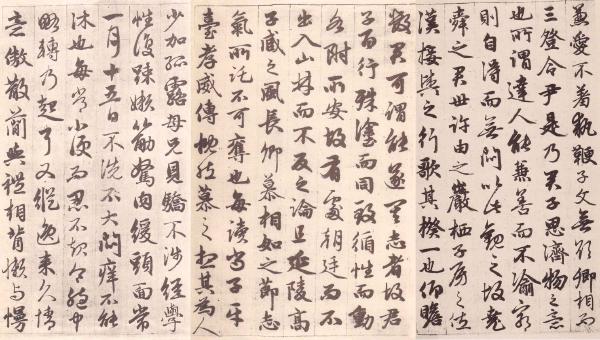 兼愛不羞執鞭子文無欲卿相而
三登令尹是乃君子思濟物之意
也所謂達人能兼善而不渝窮
則自得而無悶以此觀之故堯
舜之君世許由之巖栖子房之佐
漢接輿之行歌其揆一也仰瞻
數君可謂能遂其志者故君
子百行殊塗而同致循性而動
各附所安故有處朝廷而不
出入山林而不反之論且延陵高
子臧之風長卿慕相如之節志
氣所託不可奪也每讀尚子平
臺孝威傳慨然慕之想其為人
少加孤露母兄見驕不涉經學
性復疎嬾筋駑肉緩頭面常
一月十五日不洗不大悶癢不能
沐也每常小便而忍不起令胞中
略轉乃起耳又縱逸來久情
意傲散簡與禮相背嬾與慢